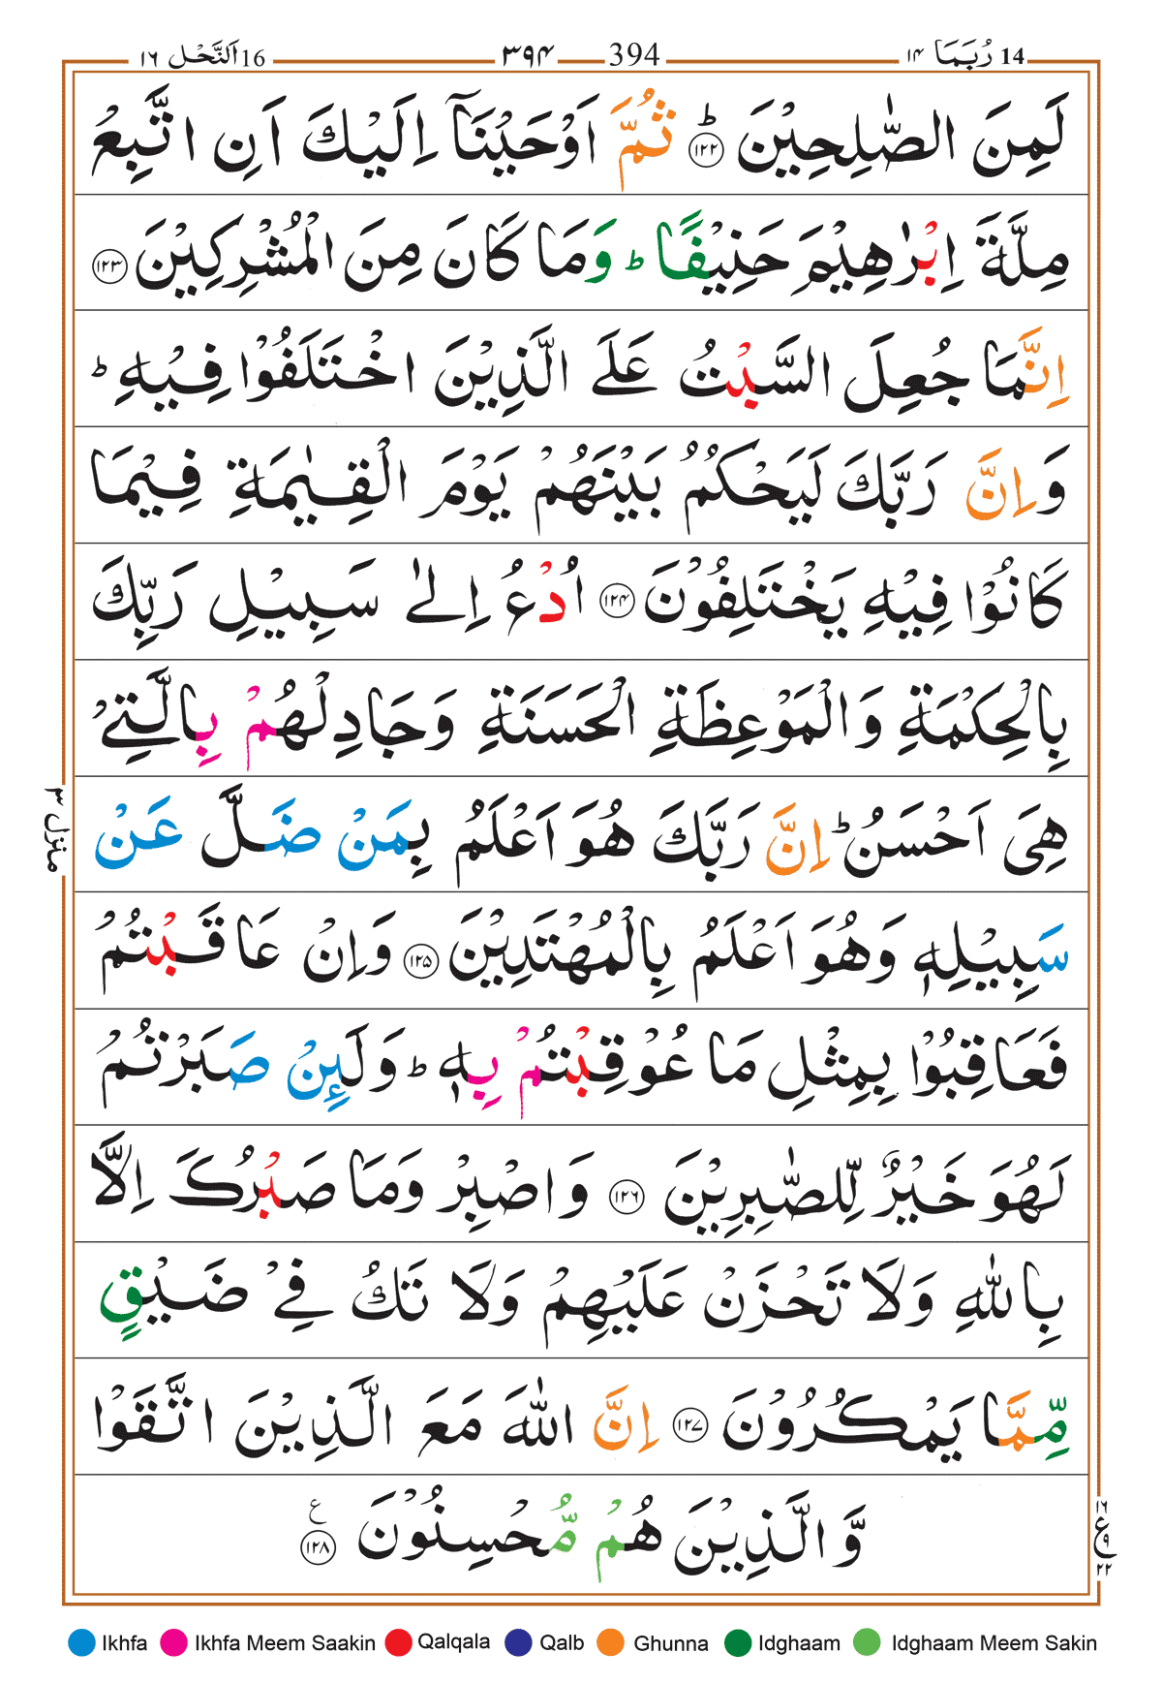 14 رُبَمَا ۱۴ 394 ۳۹۴ 16 اَلنَّحْل ۱۶
لَمِنَ الصّٰلِحِيْنَ ؕ‏ ﴿۱۲۲﴾ ثُمَّ اَوْحَيْنَاۤ اِلَيْكَ اَنِ اتَّبِعْ
مِلَّةَ اِبْرٰهِيْمَ حَنِيْفًا‌ ؕ وَمَا كَانَ مِنَ الْمُشْرِكِيْنَ ﴿۱۲۳﴾
اِنَّمَا جُعِلَ السَّبْتُ عَلَى الَّذِيْنَ اخْتَلَفُوْا فِيْهِ‌ ؕ
وَاِنَّ رَبَّكَ لَيَحْكُمُ بَيْنَهُمْ يَوْمَ الْقِيٰمَةِ فِيْمَا
كَانُوْا فِيْهِ يَخْتَلِفُوْنَ ﴿۱۲۴﴾ اُدْعُ اِلٰى سَبِيْلِ رَبِّكَ
بِالْحِكْمَةِ وَالْمَوْعِظَةِ الْحَسَنَةِ وَجَادِلْهُمْ بِالَّتِىْ
هِىَ اَحْسَنُ‌ؕ اِنَّ رَبَّكَ هُوَ اَعْلَمُ بِمَنْ ضَلَّ عَنْ
سَبِيْلِهٖ وَهُوَ اَعْلَمُ بِالْمُهْتَدِيْنَ ﴿۱۲۵﴾ وَاِنْ عَاقَبْتُمْ
فَعَاقِبُوْا بِمِثْلِ مَا عُوْقِبْتُمْ بِهٖ‌ؕ وَلَٮِٕنْ صَبَرْتُمْ
لَهُوَ خَيْرٌ لِّلصّٰبِرِيْنَ ﴿۱۲۶﴾ وَاصْبِرْ وَمَا صَبْرُكَ اِلَّا
بِاللّٰهِ‌ وَلَا تَحْزَنْ عَلَيْهِمْ وَلَا تَكُ فِىْ ضَيْقٍ
مِّمَّا يَمْكُرُوْنَ ﴿۱۲۷﴾ اِنَّ اللّٰهَ مَعَ الَّذِيْنَ اتَّقَوْا
وَّالَّذِيْنَ هُمْ مُّحْسِنُوْنَ ﴿۱۲۸﴾ ع
منزل ۳
۱۶
ع ۹
۲۲
Ikhfa Ikhfa Meem Saakin Qalqala Qalb Ghunna Idghaam Idghaam Meem Sakin